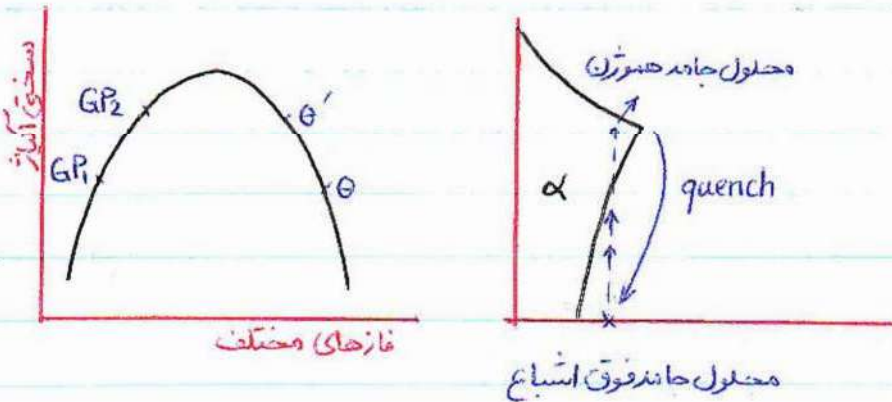 سختی آلیاژ
GP₂
GP₁
θ′
θ
فازهای مختلف
محلول جامد هموژن
α
quench
محلول جامد فوق اشباع